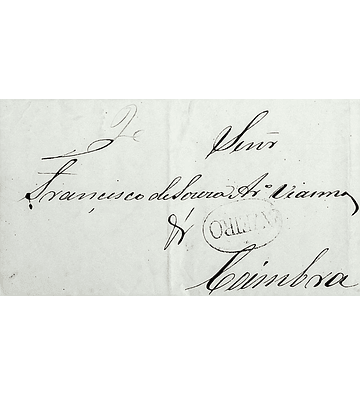 Senr
Francisco de Souza Ar.º Vianna
&
AVEIRO
Coimbra